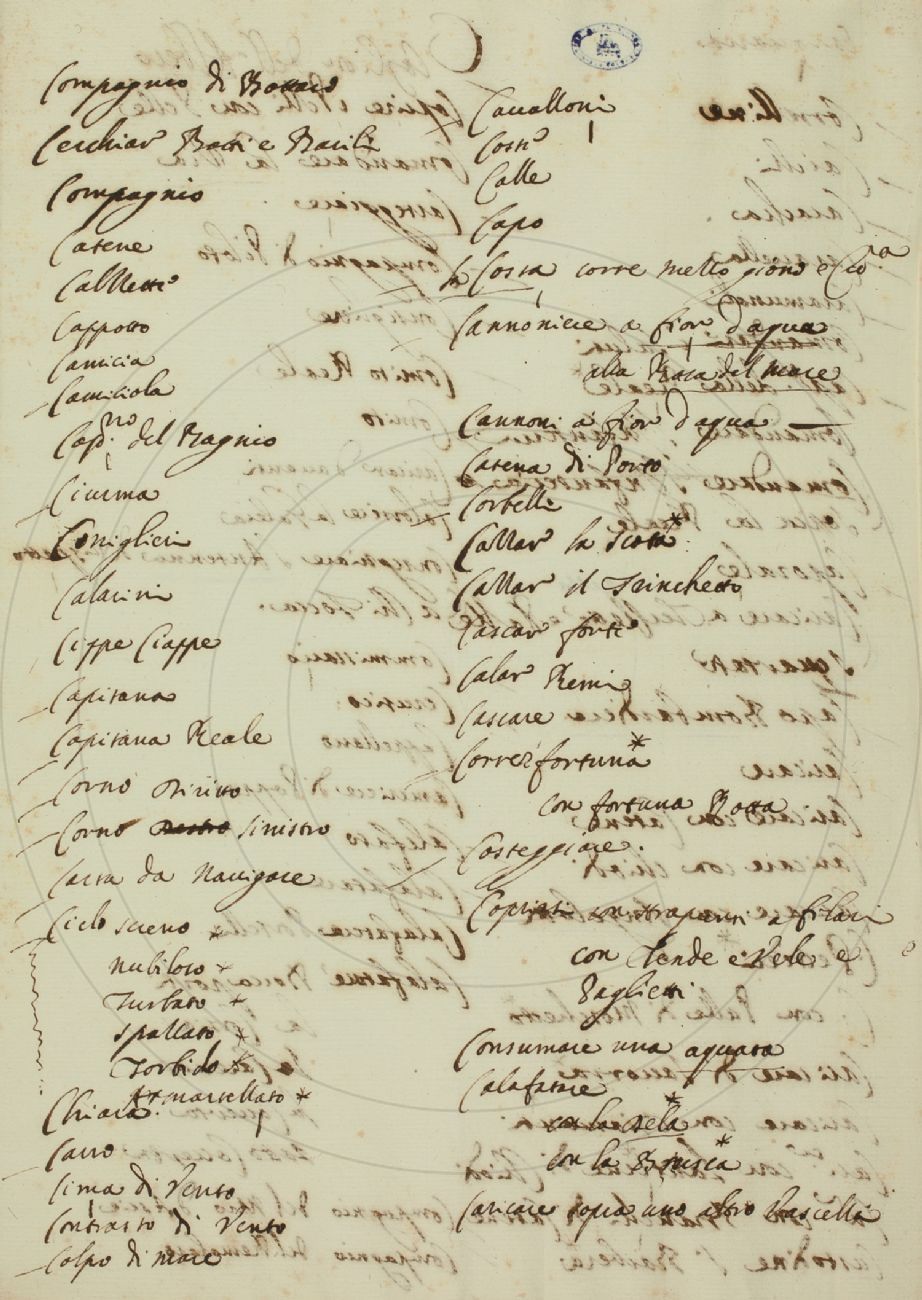 C
Compagnio di
Cerchiar Botti e Barili
Compagnio
Catene
Calzette
Cappotto
Camicia
Camiciola
Capo.rro del Bagnio
Ciurma
Coniglieri
Calacimi
Cippe Ciappe
Capitana
Capitana Reale
Corno diritto
Corno destro sinistro
Carta da Navigare
Cielo sereno *
nubiloso *
Turbato *
spallato *
Torbido *
martellato *
Chiara
Carro
Cima di Vento
Contrasto di Vento
Colpo di mare
Cavalloni
Coste
Calle
Capo
la Costa corre mezzo giorno e
Cannoniere a fior d'aqua
alla Rasa del mare
Cannoni a fior d'aqua —
Catena di Porto
Corbelli
Callar la scotta *
Callar il Trinchetto
Cascar forte
Calar Remi
Cascare
Correr fortuna *
con fortuna Rotta
Costeggiare.
con strapunti a filari
con Tende e Vele e
Paglietti
Consumare una aguata
Calafatare
con la Tela *
con la Brusca *
Caricare sopra uno altro Vascello